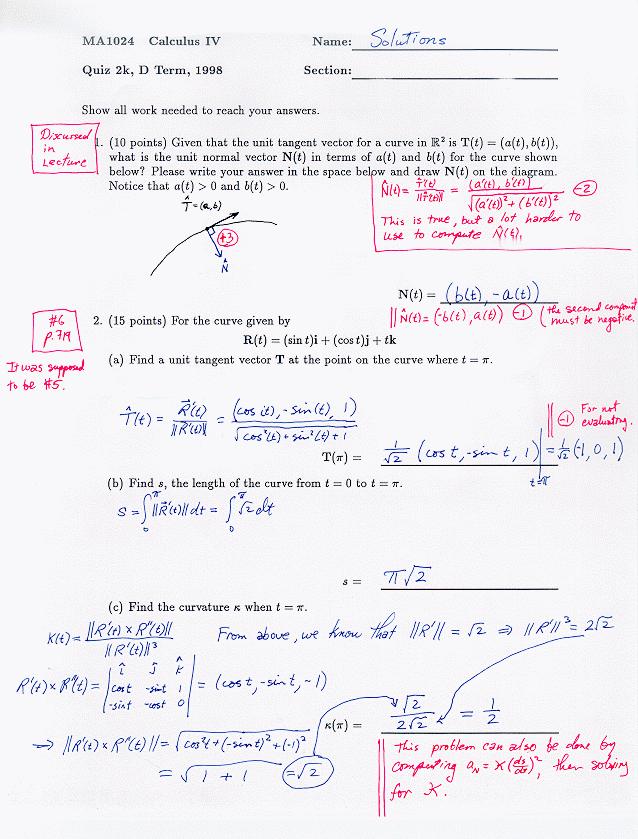 MA1024 Calculus IV Name: Solutions
Quiz 2k, D Term, 1998 Section:
Show all work needed to reach your answers.
Discussed in Lecture
1. (10 points) Given that the unit tangent vector for a curve in ℝ² is T(t) = (a(t), b(t)),
what is the unit normal vector N(t) in terms of a(t) and b(t) for the curve shown
below? Please write your answer in the space below and draw N(t) on the diagram.
Notice that a(t) > 0 and b(t) > 0.
T̂ = (a, b)
+3
N̂
N̂(t) = T̂'(t)/||T̂'(t)|| = (a'(t), b'(t))/√((a'(t))² + (b'(t))²) -2
This is true, but a lot harder to
use to compute N̂(t).
N(t) = (b(t), -a(t))
N̂(t) = (-b(t), a(t)) -1 (the second component
must be negative.
#6
p.719
It was supposed
to be #5.
2. (15 points) For the curve given by
R(t) = (sin t)i + (cos t)j + tk
(a) Find a unit tangent vector T at the point on the curve where t = π.
T̂(t) = R⃗'(t)/||R⃗'(t)|| = (cos(t), -sin(t), 1)/√(cos²(t) + sin²(t) + 1)
-1 For not
evaluating.
T(π) = 1/√2 (cos t, -sin t, 1)|t=π = 1/√2 (-1, 0, 1)
(b) Find s, the length of the curve from t = 0 to t = π.
S = ∫₀^π ||R⃗'(t)|| dt = ∫₀^π √2 dt
s = π√2
(c) Find the curvature κ when t = π.
K(t) = ||R'(t) × R"(t)||/||R'(t)||³ From above, we know that ||R'|| = √2 ⇒ ||R'||³ = 2√2
R'(t) × R"(t) = | î ĵ k̂ |
| cost -sint 1 | = (cost, -sint, -1)
| -sint -cost 0 |
κ(π) = √2/2√2 = 1/2
⇒ ||R'(t) × R"(t)|| = √(cos²t + (-sint)² + (-1)²)
= √(1 + 1) = √2
This problem can also be done by
computing a_N = K(ds/dt)², then solving
for K.